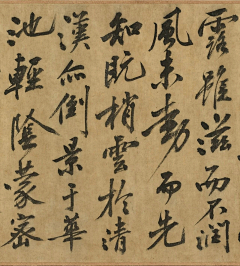 露雖滋而不潤
風未動而先
知既梢雲於清
漢亦倒景于華
池輕陰蒙密